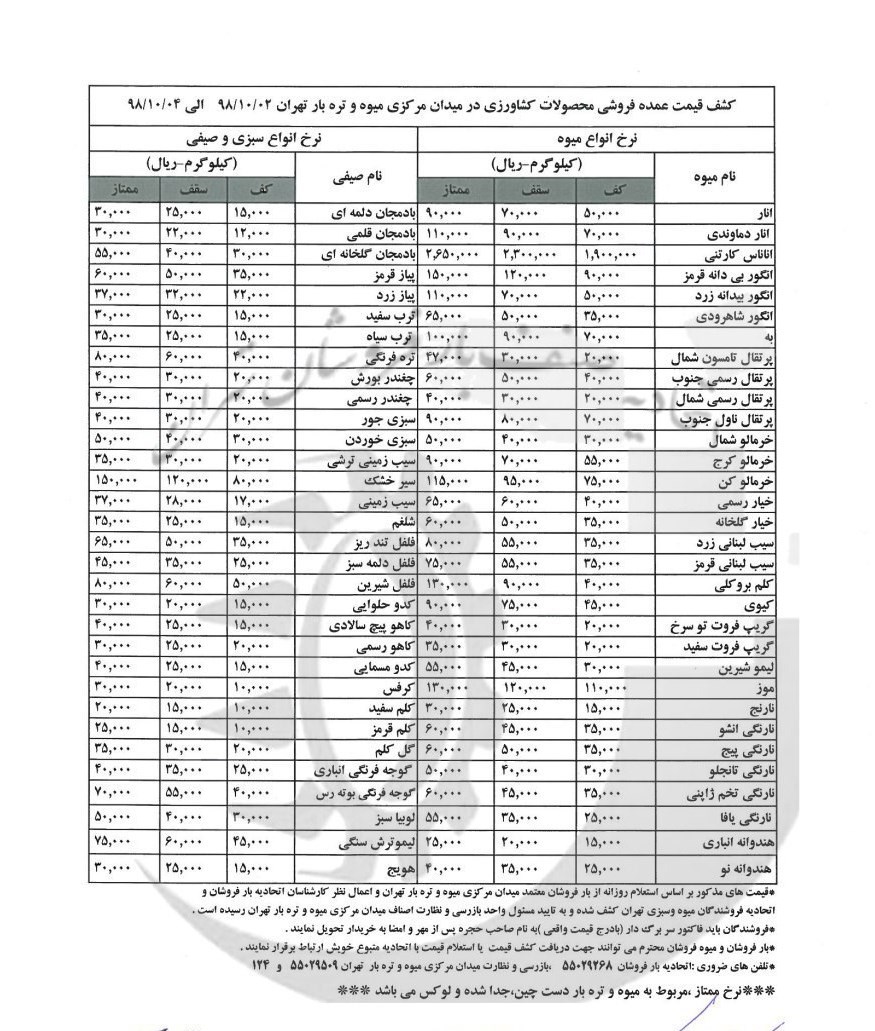 کشف قیمت عمده فروشی محصولات کشاورزی در میدان مرکزی میوه و تره بار تهران ۹۸/۱۰/۰۲ الی ۹۸/۱۰/۰۴
نرخ انواع میوه نرخ انواع سبزی و صیفی
نام میوه (کیلوگرم-ریال) نام صیفی (کیلوگرم-ریال)
کف سقف ممتاز کف سقف ممتاز
انار ۵۰,۰۰۰ ۷۰,۰۰۰ ۹۰,۰۰۰ بادمجان دلمه ای ۱۵,۰۰۰ ۲۵,۰۰۰ ۳۰,۰۰۰
انار دماوندی ۷۰,۰۰۰ ۹۰,۰۰۰ ۱۱۰,۰۰۰ بادمجان قلمی ۱۲,۰۰۰ ۲۲,۰۰۰ ۳۰,۰۰۰
اناناس کارتنی ۱,۹۰۰,۰۰۰ ۲,۳۰۰,۰۰۰ ۲,۶۵۰,۰۰۰ بادمجان گلخانه ای ۳۰,۰۰۰ ۴۰,۰۰۰ ۵۵,۰۰۰
انگور بی دانه قرمز ۹۰,۰۰۰ ۱۲۰,۰۰۰ ۱۵۰,۰۰۰ پیاز قرمز ۳۵,۰۰۰ ۵۰,۰۰۰ ۶۰,۰۰۰
انگور بیدانه زرد ۵۰,۰۰۰ ۷۰,۰۰۰ ۱۱۰,۰۰۰ پیاز زرد ۲۲,۰۰۰ ۳۲,۰۰۰ ۳۷,۰۰۰
انگور شاهرودی ۳۵,۰۰۰ ۵۰,۰۰۰ ۶۵,۰۰۰ ترب سفید ۱۵,۰۰۰ ۲۵,۰۰۰ ۳۰,۰۰۰
به ۷۰,۰۰۰ ۹۰,۰۰۰ ۱۰۰,۰۰۰ ترب سیاه ۱۵,۰۰۰ ۲۵,۰۰۰ ۳۵,۰۰۰
پرتقال تامسون شمال ۲۰,۰۰۰ ۳۰,۰۰۰ ۴۷,۰۰۰ تره فرنگی ۴۰,۰۰۰ ۶۰,۰۰۰ ۸۰,۰۰۰
پرتقال رسمی جنوب ۴۰,۰۰۰ ۵۰,۰۰۰ ۶۰,۰۰۰ چغندر بورش ۲۰,۰۰۰ ۳۰,۰۰۰ ۴۰,۰۰۰
پرتقال رسمی شمال ۲۰,۰۰۰ ۳۰,۰۰۰ ۴۰,۰۰۰ چغندر رسمی ۲۰,۰۰۰ ۳۰,۰۰۰ ۴۰,۰۰۰
پرتقال ناول جنوب ۷۰,۰۰۰ ۸۰,۰۰۰ ۹۰,۰۰۰ سبزی جور ۲۰,۰۰۰ ۳۰,۰۰۰ ۴۰,۰۰۰
خرمالو شمال ۳۰,۰۰۰ ۴۰,۰۰۰ ۵۰,۰۰۰ سبزی خوردن ۳۰,۰۰۰ ۴۰,۰۰۰ ۵۰,۰۰۰
خرمالو کرج ۵۵,۰۰۰ ۷۰,۰۰۰ ۹۰,۰۰۰ سیب زمینی ترشی ۲۰,۰۰۰ ۳۰,۰۰۰ ۳۵,۰۰۰
خرمالو کن ۷۵,۰۰۰ ۹۵,۰۰۰ ۱۱۵,۰۰۰ سیر خشک ۸۰,۰۰۰ ۱۲۰,۰۰۰ ۱۵۰,۰۰۰
خیار رسمی ۴۰,۰۰۰ ۶۰,۰۰۰ ۶۵,۰۰۰ سیب زمینی ۱۷,۰۰۰ ۲۸,۰۰۰ ۳۷,۰۰۰
خیار گلخانه ۳۵,۰۰۰ ۵۰,۰۰۰ ۶۰,۰۰۰ شلغم ۱۵,۰۰۰ ۲۵,۰۰۰ ۳۵,۰۰۰
سیب لبنانی زرد ۳۵,۰۰۰ ۵۵,۰۰۰ ۸۰,۰۰۰ فلفل تند ریز ۳۵,۰۰۰ ۵۰,۰۰۰ ۶۵,۰۰۰
سیب لبنانی قرمز ۳۵,۰۰۰ ۵۵,۰۰۰ ۷۵,۰۰۰ فلفل دلمه سبز ۲۵,۰۰۰ ۳۵,۰۰۰ ۴۵,۰۰۰
کلم بروکلی ۴۰,۰۰۰ ۹۰,۰۰۰ ۱۳۰,۰۰۰ فلفل شیرین ۵۰,۰۰۰ ۶۰,۰۰۰ ۸۰,۰۰۰
کیوی ۴۵,۰۰۰ ۷۵,۰۰۰ ۹۰,۰۰۰ کدو حلوایی ۱۵,۰۰۰ ۲۰,۰۰۰ ۳۰,۰۰۰
گریپ فروت تو سرخ ۲۰,۰۰۰ ۳۰,۰۰۰ ۴۰,۰۰۰ کاهو پیچ سالادی ۱۵,۰۰۰ ۲۵,۰۰۰ ۴۰,۰۰۰
گریپ فروت سفید ۲۰,۰۰۰ ۳۰,۰۰۰ ۳۵,۰۰۰ کاهو رسمی ۲۰,۰۰۰ ۲۵,۰۰۰ ۳۰,۰۰۰
لیمو شیرین ۳۰,۰۰۰ ۴۵,۰۰۰ ۵۵,۰۰۰ کدو مسمایی ۱۵,۰۰۰ ۲۵,۰۰۰ ۴۰,۰۰۰
موز ۱۱۰,۰۰۰ ۱۲۰,۰۰۰ ۱۳۰,۰۰۰ کرفس ۱۰,۰۰۰ ۲۰,۰۰۰ ۳۰,۰۰۰
نارنج ۱۵,۰۰۰ ۲۵,۰۰۰ ۳۰,۰۰۰ کلم سفید ۱۰,۰۰۰ ۱۵,۰۰۰ ۲۰,۰۰۰
نارنگی انشو ۳۵,۰۰۰ ۴۵,۰۰۰ ۶۰,۰۰۰ کلم قرمز ۱۰,۰۰۰ ۱۵,۰۰۰ ۲۵,۰۰۰
نارنگی پیج ۳۵,۰۰۰ ۵۰,۰۰۰ ۶۰,۰۰۰ گل کلم ۲۰,۰۰۰ ۳۰,۰۰۰ ۳۵,۰۰۰
نارنگی تانجلو ۳۰,۰۰۰ ۴۰,۰۰۰ ۵۰,۰۰۰ گوجه فرنگی انباری ۲۵,۰۰۰ ۳۵,۰۰۰ ۴۰,۰۰۰
نارنگی تخم ژاپنی ۳۵,۰۰۰ ۴۵,۰۰۰ ۶۰,۰۰۰ گوجه فرنگی بوته رس ۴۰,۰۰۰ ۵۵,۰۰۰ ۷۰,۰۰۰
نارنگی یافا ۲۵,۰۰۰ ۳۵,۰۰۰ ۵۵,۰۰۰ لوبیا سبز ۳۰,۰۰۰ ۴۰,۰۰۰ ۵۰,۰۰۰
هندوانه انباری ۱۵,۰۰۰ ۲۰,۰۰۰ ۲۵,۰۰۰ لیموترش سنگی ۴۵,۰۰۰ ۶۰,۰۰۰ ۷۵,۰۰۰
هندوانه نو ۲۵,۰۰۰ ۳۵,۰۰۰ ۴۰,۰۰۰ هویج ۱۵,۰۰۰ ۲۵,۰۰۰ ۳۰,۰۰۰
*قیمت های مذکور بر اساس استعلام روزانه از بار فروشان معتمد میدان مرکزی میوه و تره بار تهران و اعمال نظر کارشناسان اتحادیه بار فروشان و
اتحادیه فروشندگان میوه وسبزی تهران کشف شده و به تایید مسئول واحد بازرسی و نظارت اصناف میدان مرکزی میوه و تره بار تهران رسیده است .
*فروشندگان باید فاکتور سر برگ دار (بادرج قیمت واقعی )به نام صاحب حجره پس از مهر و امضا به خریدار تحویل نمایند .
*بار فروشان و میوه فروشان محترم می توانند جهت دریافت کشف قیمت یا استعلام قیمت با اتحادیه متبوع خویش ارتباط برقرار نمایند .
*تلفن های ضروری :اتحادیه بار فروشان ۵۵۰۲۹۲۶۸ ،بازرسی و نظارت میدان مرکزی میوه و تره بار تهران ۵۵۰۲۹۵۰۹ و ۱۲۴
***نرخ ممتاز ،مربوط به میوه و تره بار دست چین،جدا شده و لوکس می باشد ***